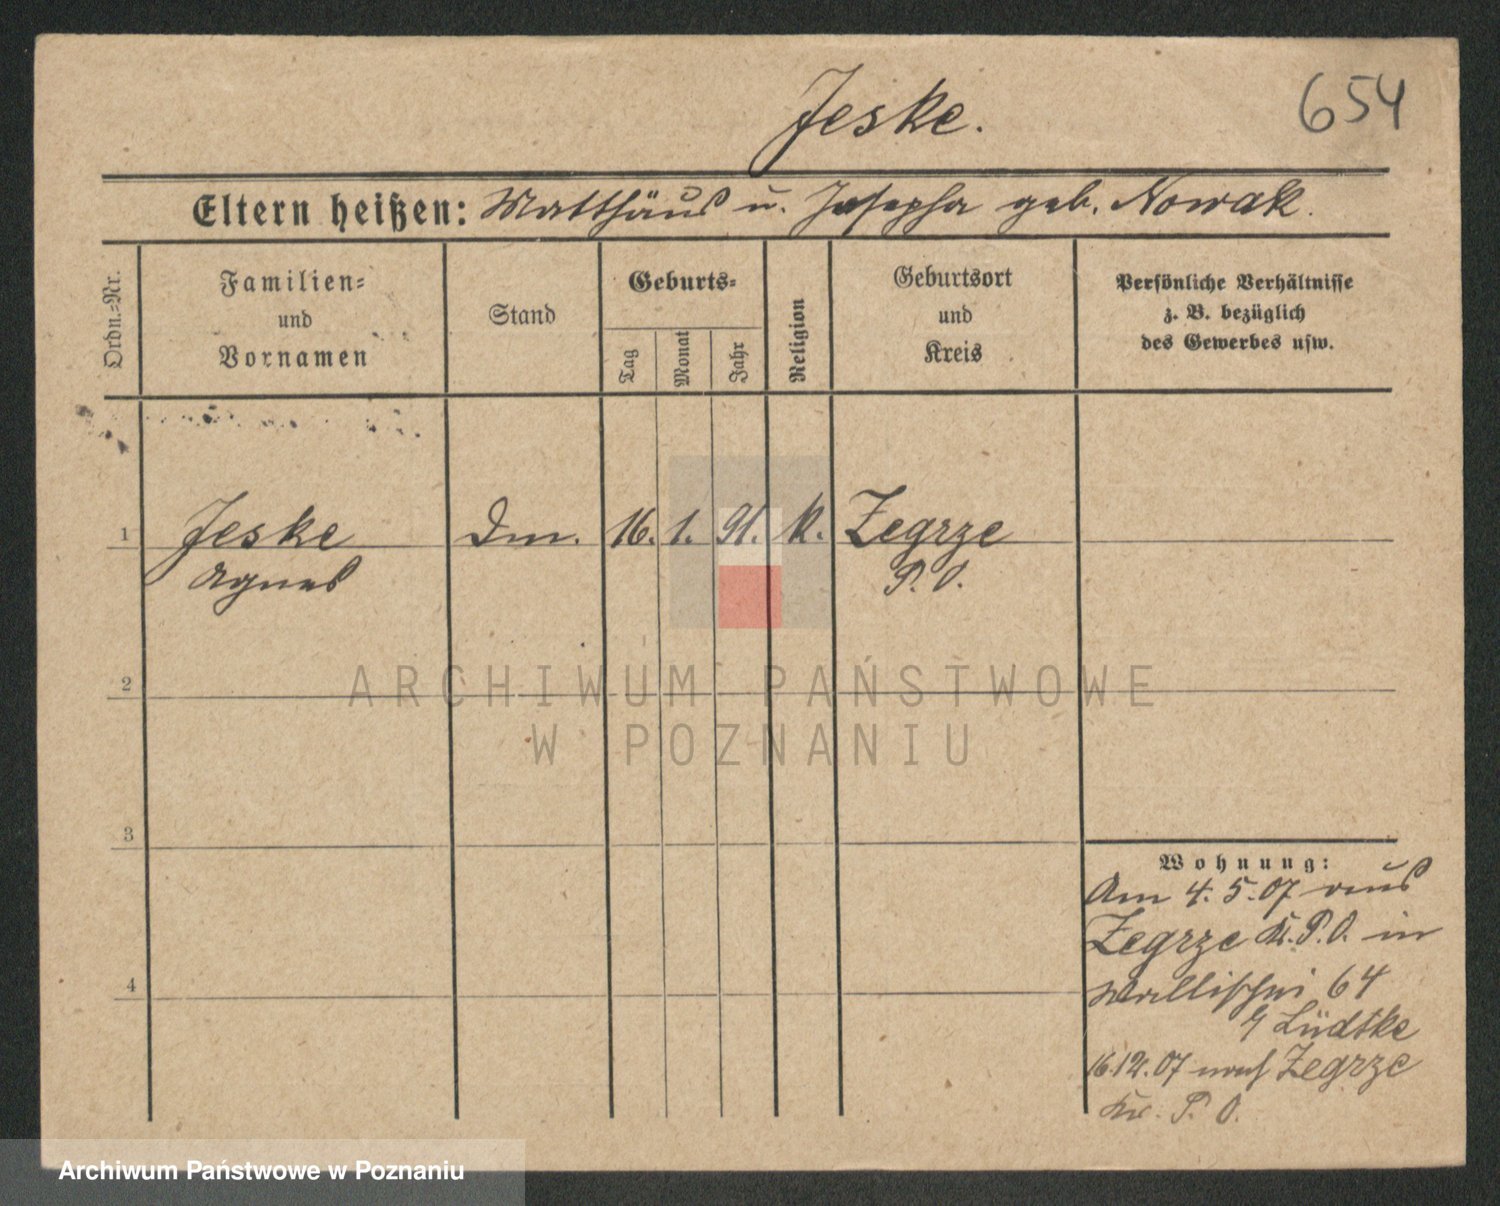 Jeske.
654
Eltern heißen: Matthäus u. Josepha geb. Nowak.
Ordn.-Nr.
Familien-
und
Vornamen
Stand
Geburts-
Tag
Monat
Jahr
Religion
Geburtsort
und
Kreis
Persönliche Verhältnisse
z. B. bezüglich
des Gewerbes usw.
1 Jeske Dm. 16. 1. 91. k. Zegrze
Agnes P. O.
2
ARCHIWUM PAŃSTWOWE
W POZNANIU
3
Wohnung:
Am 4. 5. 07 aus
Zegrze Kr. P. O. in
4
Wallischei 64
Lüdtke
16.12.07 nach Zegrze
Kr. P. O.
Archiwum Państwowe w Poznaniu